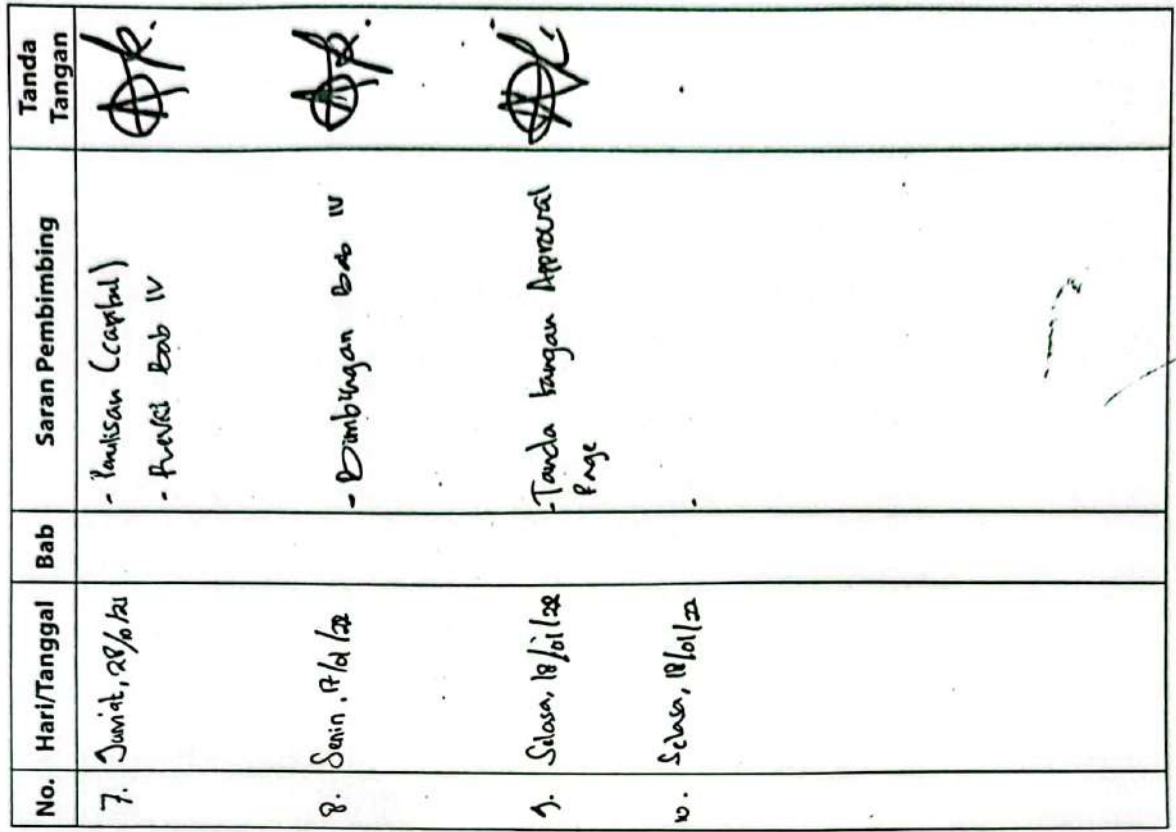 No. Hari/Tanggal Bab Saran Pembimbing Tanda Tangan
7. Jum'at, 28/10/21 - Penulisan (capital)
- Revisi Bab IV
8. Senin, 17/01/22 - Bimbingan Bab IV
9. Selasa, 18/01/22 - Tanda tangan Approval
Page
10. Selasa, 18/01/22 -